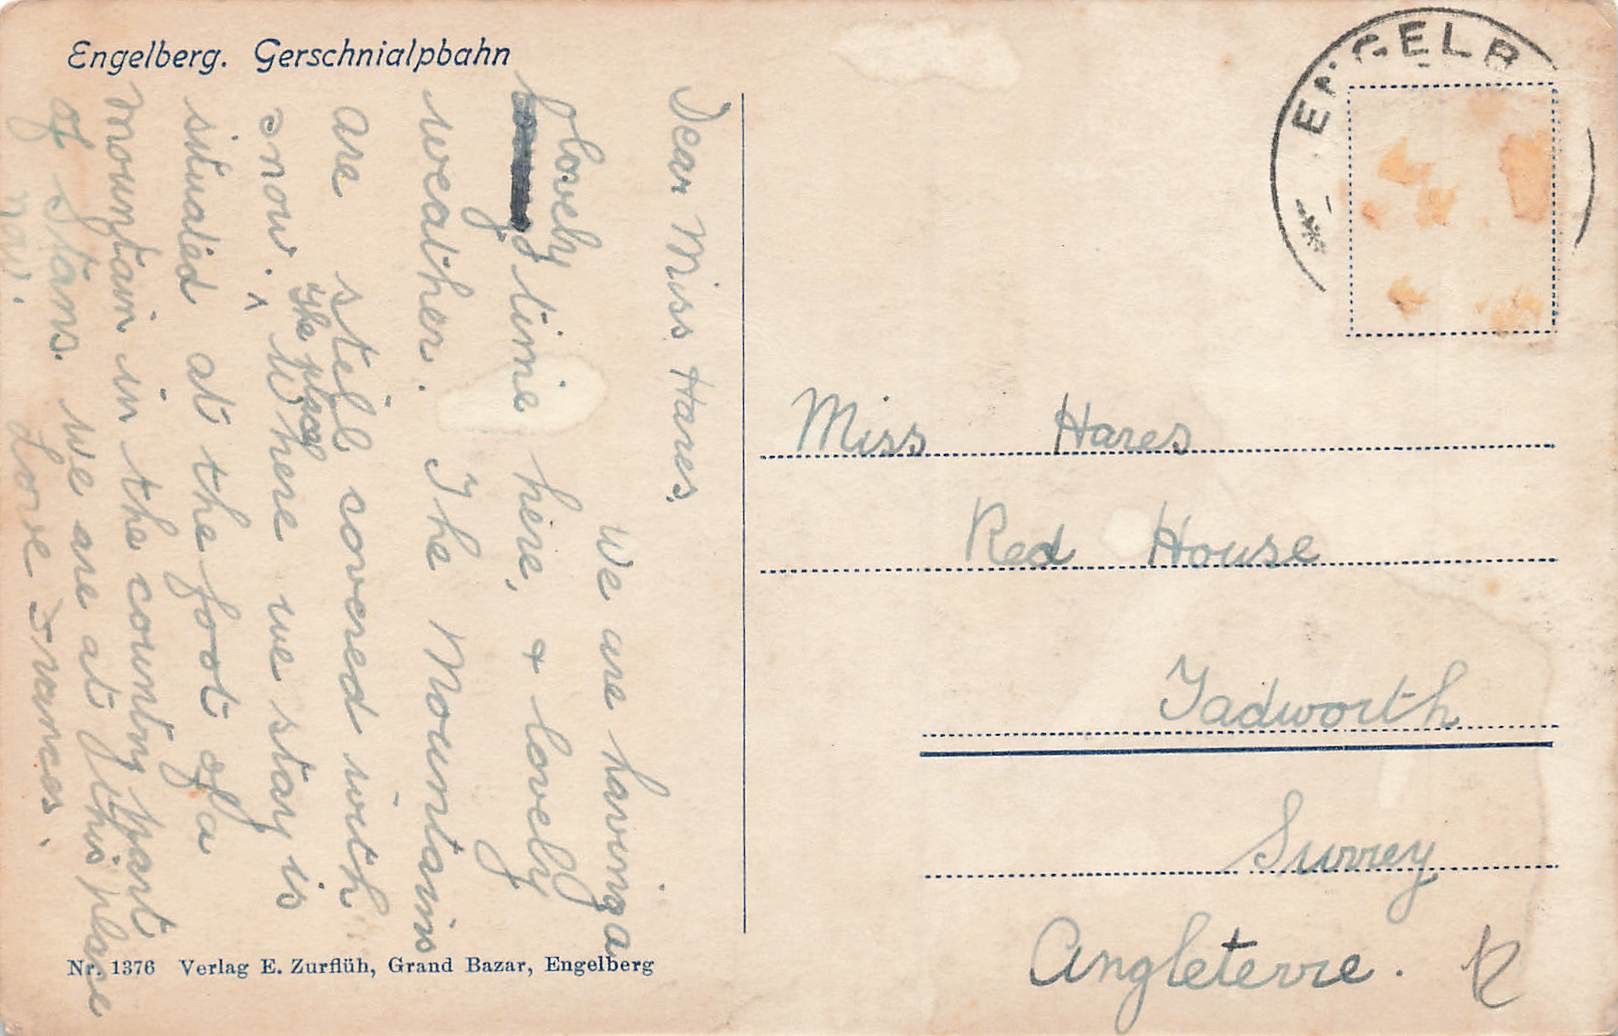 Engelberg. Gerschnialpbahn
Dear Miss Hares,
We are having a
lovely time here, & lovely
weather. The Mountains
are still covered with
snow. ^ Where we stay is
The place
situated at the foot of a
mountain in the country part
of Stans. We are at this place
now. Love Frances.
Nr. 1376 Verlag E. Zurflüh, Grand Bazar, Engelberg
ENGELB
Miss Hares
Red House
Tadworth
Surrey
Angleterre.